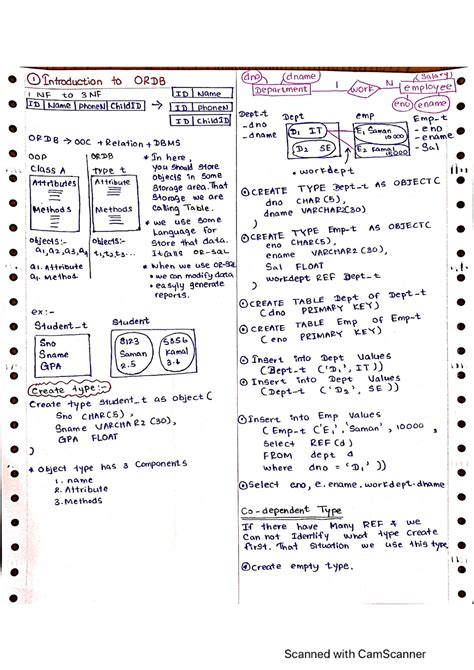 ① Introduction to ORDB
1 NF to 3NF
ID | Name | PhoneN | ChildID
ID | Name
ID | PhoneN
ID | ChildID
ORDB → OOC + Relation + DBMS
OOP
Class A
Attributes
Methods
objects:-
a1, a2, a3, a4
a1. Attribute
a1. Method
ORDB
Type t
Attribute
Methods
objects:-
t1, t2, t3...
* In here,
you should store
objects in some
storage area. That
storage we are
calling Table.
* we use some
Language for
store that data.
It calls OR-SQL
* When we use OR-SQL
* we can modify data
* easyly generate
reports.
ex:-
Student_t
Sno
Sname
GPA
Student
8123
Saman
2.5
5356
Kamal
3.6
Create type:-
Create type Student_t as object (
Sno CHAR(5),
Sname VARCHAR2(30),
GPA FLOAT
)
* Object type has 3 Components
1. name
2. Attribute
3. Methods
dno
dname
Department
1
work
N
employee
Salary
eno
ename
Dept-t
- dno
- dname
Dept
D1 IT
D2 SE
emp
E1 Saman
10000
E2 Kamal
15000
Emp-t
- eno
- ename
- Sal
• workdept
CREATE TYPE Dept-t AS OBJECT (
dno CHAR(5),
dname VARCHAR2(30)
)
CREATE TYPE Emp-t AS OBJECT (
eno CHAR(5),
ename VARCHAR2(30),
Sal FLOAT
workdept REF Dept-t
)
CREATE TABLE Dept of Dept-t
(dno PRIMARY KEY)
CREATE TABLE Emp of Emp-t
(eno PRIMARY KEY)
Insert into Dept Values
(Dept-t ('D1', IT))
Insert into Dept Values
(Dept-t ('D2', SE))
Insert into Emp Values
(Emp-t ('E1', 'Saman', 10000,
Select REF(d)
FROM dept d
where dno = 'D1'))
Select eno, e.ename.workdept.dname
Co-dependent Type
If there have Many REF & we
Can not Identify what type create
first. That situation we use this type
Create empty type.
Scanned with CamScanner